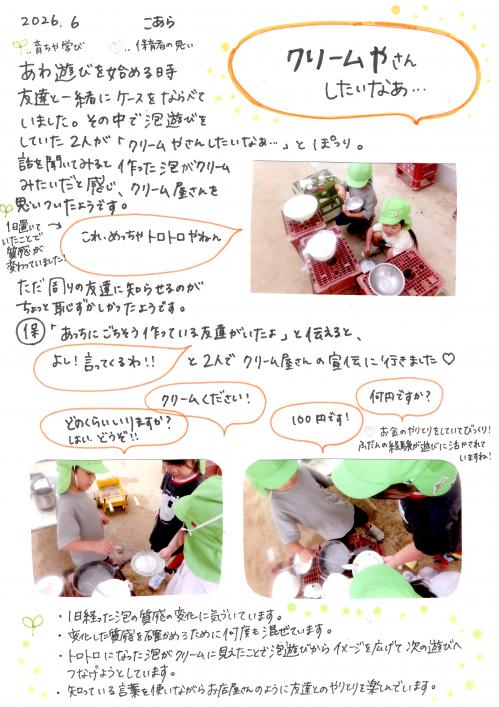 2026. 6 こあら
‥育ちや学び ‥保育者の思い
クリームやさん
したいなぁ…
あわ遊びを始める時
友達と一緒にケースをならべて
いました。その中で泡遊びを
していた2人が「クリームやさんしたいなぁ…」とぽつり。
話を聞いてみると作った泡がクリーム
みたいだと感じ、クリーム屋さんを
思いついたようです。
1日置いて
いたことで
質感が
変わっていました!
これ、めっちゃトロトロやねん
ただ周りの友達に知らせるのが
ちょっと恥ずかしかったようです。
保「あっちにごちそう作っている友達がいたよ」と伝えると、
よし!言ってくるわ!!
と2人でクリーム屋さんの宣伝に行きました♡
クリームください!
何円ですか?
どのくらいいりますか?
はい、どうぞ!!
100円です!
お金のやりとりをしていてびっくり!
ふだんの経験が遊びに活かされて
いますね!
・1日経った泡の質感の変化に気づいています。
・変化した質感を確かめるために何度も混ぜています。
・トロトロになった泡がクリームに見えたことで泡遊びからイメージを広げて次の遊びへ
つなげようとしています。
・知っている言葉を使いながらお店屋さんのように友達とのやりとりを楽しんでいます。